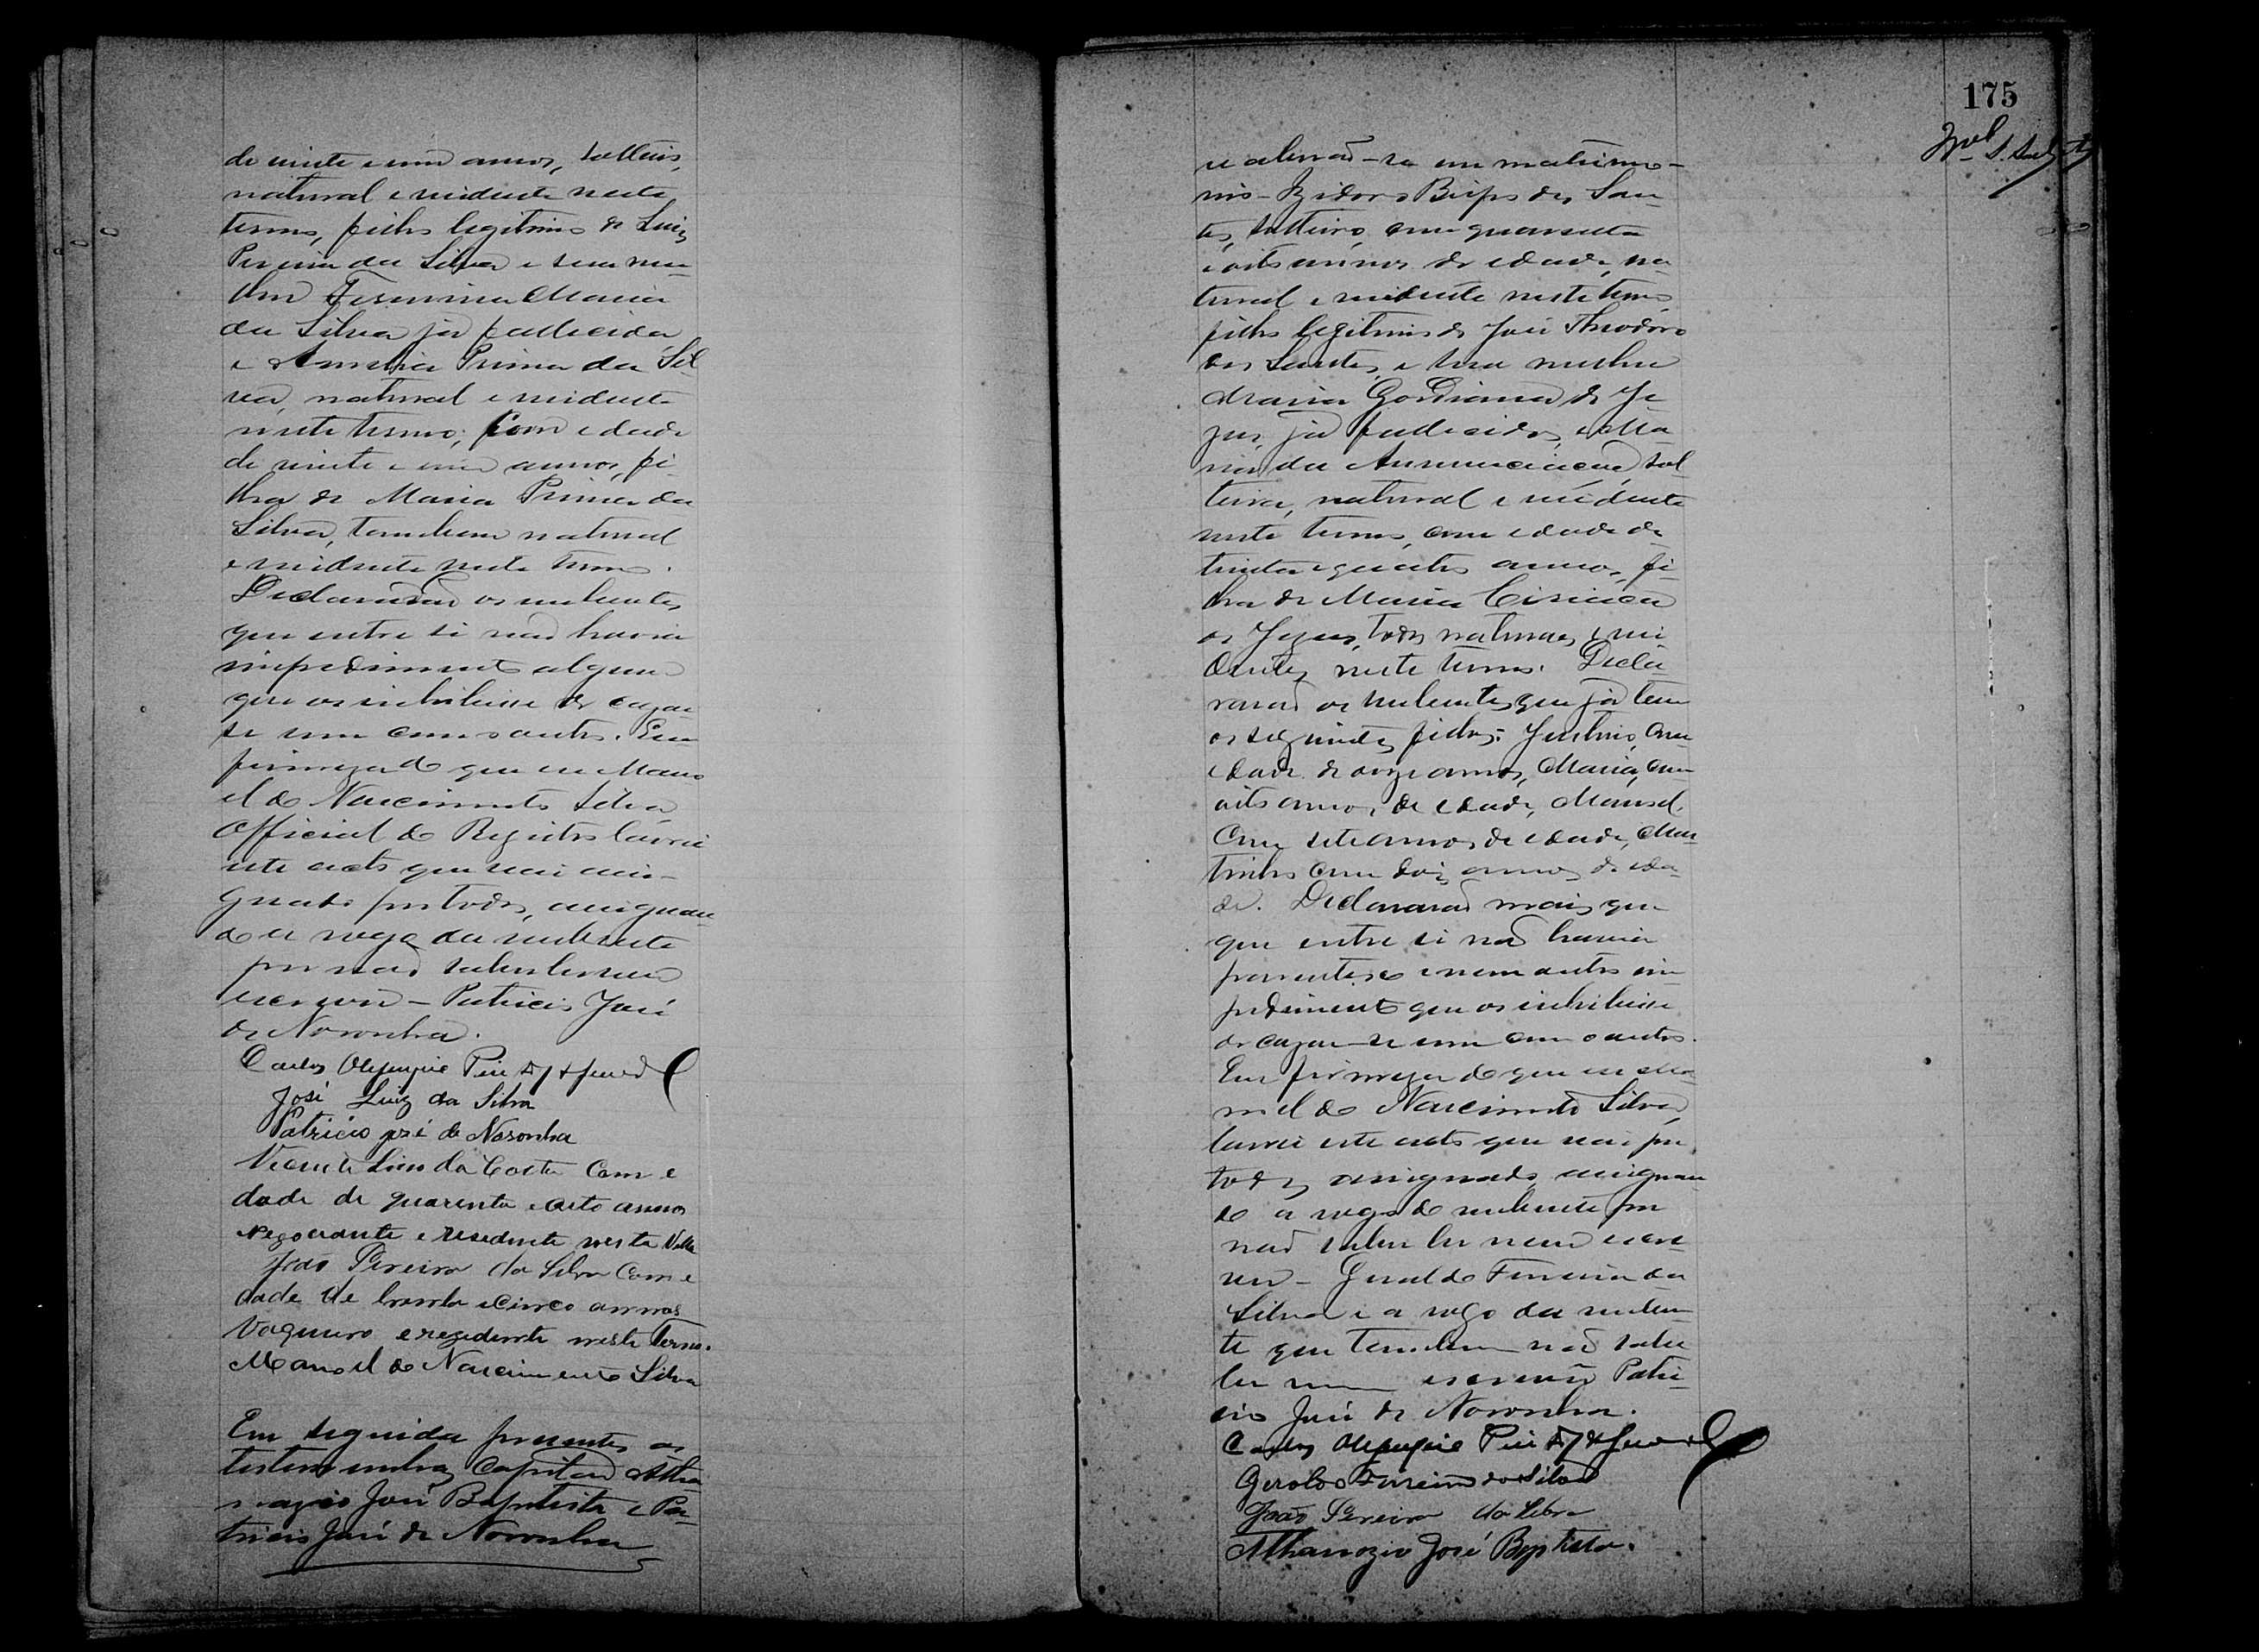 de vinte e um annos, solteiro,
natural e residente neste
termo, filho legitimo de Luiz
Pereira da Silva e sua mu-
lher Fermina Maria
da Silva já fallecida
e Anna Prima da Sil
va, natural e residente
neste termo, com edade
de vinte e um annos, fi
lha de Maria Prima da
Silva, tambem natural
e residente neste termo.
Declararão os nubentes
que entre si não havia
impedimento algum
que os inhibisse de cazar
se um com o outro. Em
firmeza do que eu Mano
el do Nascimento Silva
Official do Registro lavrei
este acto que vai assi-
gnado por todos, assignan
do a rogo da nubente
por não saber ler nem
escrever – Patricio José
de Noronha.
Carlos Olympio
José Luiz da Silva
Patricio José de Noronha
Vicente Lino da Costa Com e
dade de quarenta e oito annos
negociante e residente nesta Villa
João Pereira da Silva Com e
dade de trenta e cinco annos
Vaqueiro e rezidente neste Termo.
Manoel do Nascimento Silva
Em seguida presentes as
testemunhas Capitão Atha
nazio José Baptista e Pa-
tricio José de Noronha
175
receberão-se em matrimo-
nio – Izidoro Bispo dos San
tos, solteiro, com quarenta
e oito annos de edade, na
tural e residente neste termo
filho legitimo de José Theodoro
dos Santos e sua mulher
Maria Gordiana de Je
zus, já fallecidos, e Ma
ria da Annunciação, sol
teira, natural e residente
neste termo, com edade de
trinta e quatro annos, fi-
lha de Maria Ciriaca
de Jezus, todos naturaes e resi
dentes neste termo. Decla-
rarão os nubentes que já tem
os seguintes filhos: Justino, com
edade de onze annos, Maria, com
oito annos de edade, Manoel
com sete annos de edade, Mar
tinho com dois annos de eda-
de. Declararão mais que
que entre si não havia
parentesco e nem outro im
pedimento que os inhibisse
de cazar-se um com o outro.
Em firmeza do que eu Ma-
noel do Nascimento Silva,
lavrei este acto que vai por
todos assignado, assignan
do a rogo do nubente por
não saber ler nem escre-
ver – Geraldo Ferreira da
Silva e a rogo da nuben
te que tambem não sabe
ler nem escrever Patri-
cio José de Noronha.
Carlos Olympio
Geraldo Ferreira da Silva
João Pereira da Silva
Athanazio José Baptista.